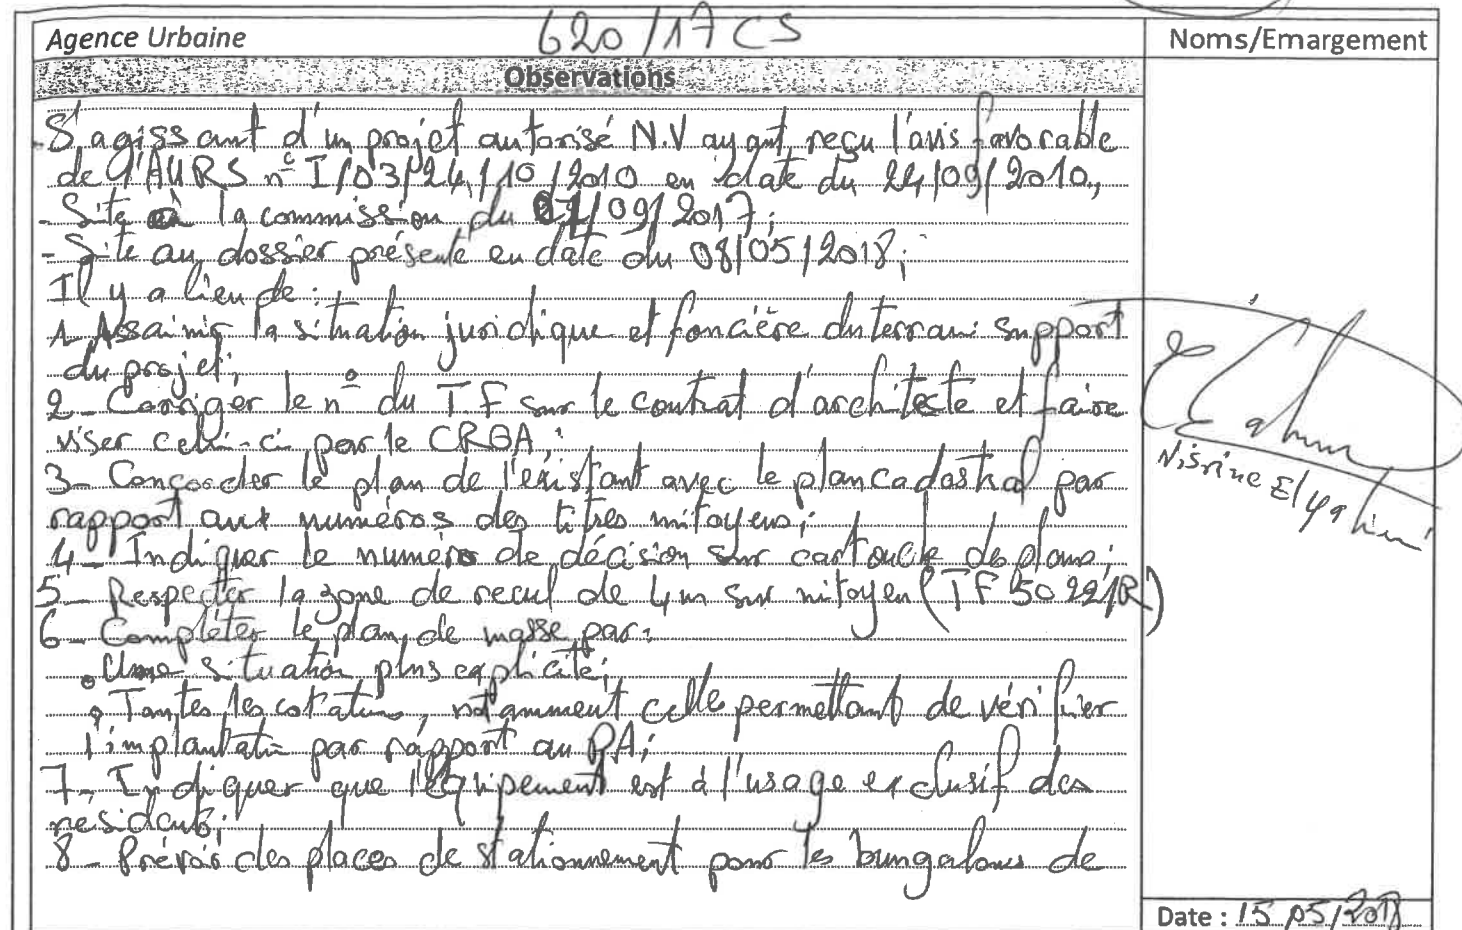 Agence Urbaine 620/17 CS Noms/Emargement
Observations
- S'agissant d'un projet autorisé N.V ayant reçu l'avis favorable
de l'AURS n° I/03/24/10/2010 en date du 24/09/2010,
- Site à la commission du 07/09/2017;
- Site au dossier présenté en date du 08/05/2018;
Il y a lieu de :
1- Assainir la situation juridique et foncière du terrain support
du projet;
2- Corriger le n° du T.F sur le contrat d'architecte et faire
viser celui-ci par le CROA;
3- Concorder le plan de l'existant avec le plan cadastral par
rapport aux numéros des titres mitoyens;
4- Indiquer le numéro de décision sur cartouche des plans;
5- Respecter la zone de recul de 4m sur mitoyen (TF 50221R)
6- Compléter le plan de masse par:
• Une situation plus explicite;
• Toutes les cotations, notamment celle permettant de vérifier
l'implantation par rapport au PA;
7- Indiquer que l'équipement est à l'usage exclusif des
résidents;
8- Prévoir des places de stationnement pour les bungalows de
Nisrine El
Date : 15/05/2018